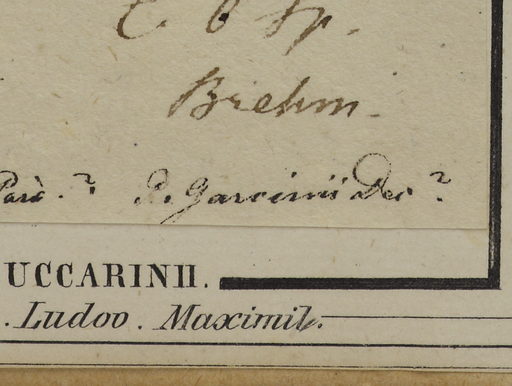 C b Sp.
Brehm.
Parà.? P. Garcinii Dec?
UCCARINII.
. Ludov. Maximil.